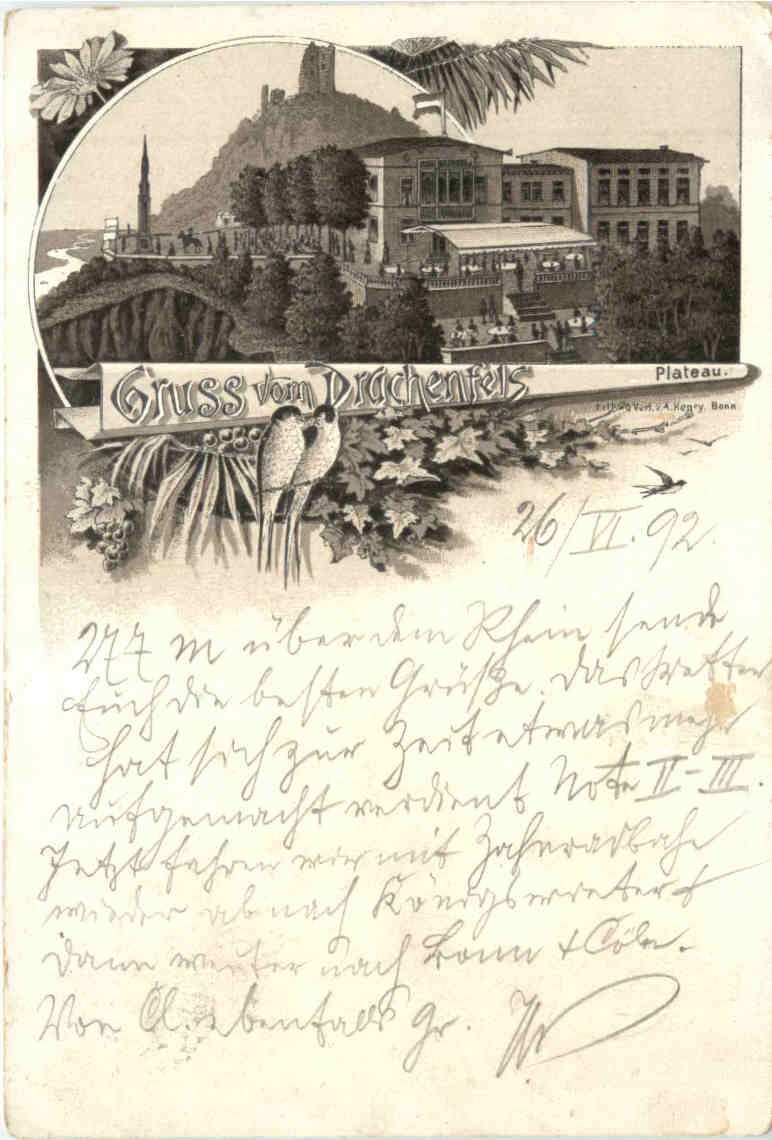 Gruss vom Drachenfels
Plateau.
Verl. v. A. Henry, Bonn
26/VI. 92.
277 m über dem Rhein sende
Euch die besten Grüße. Das Wetter
hat sich zur Zeit etwas mehr
aufgemacht verdient Note II-III.
Jetzt fahren wir mit Zahnradbahn
wieder ab nach Königswinter &
dann weiter nach Bonn + Cöln.
Von ebenfalls Gr.